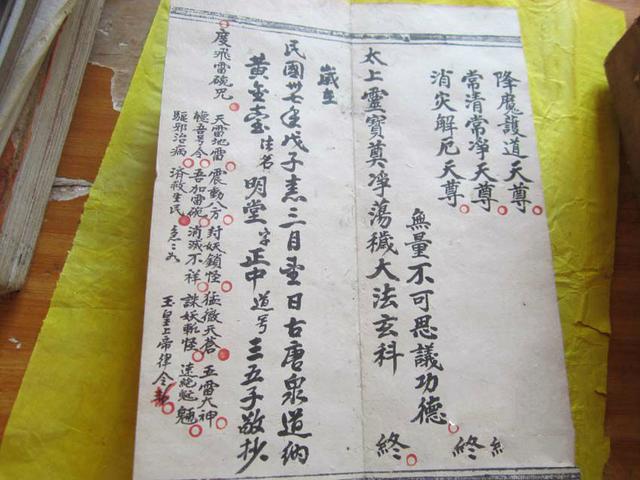 降魔護道天尊
常清常凈天尊
消灾解厄天尊
無量不可思議功德
終
終
太上靈寳奠凈蕩穢大法玄科
終
歲在
民國卅七年戊子春三月日古唐泉道納
黄金堂法名明堂字正中道号三五子敬抄
度飛雷碗咒
天雷地雷 震動八方 封妖鎖怪 猛徹天蒼 五雷大神
聽吾号令 吾加雷碗 消滅不祥 誅妖斬怪 速 魍魎
驅邪治病 濟救生民 急々如
玉皇上帝律令